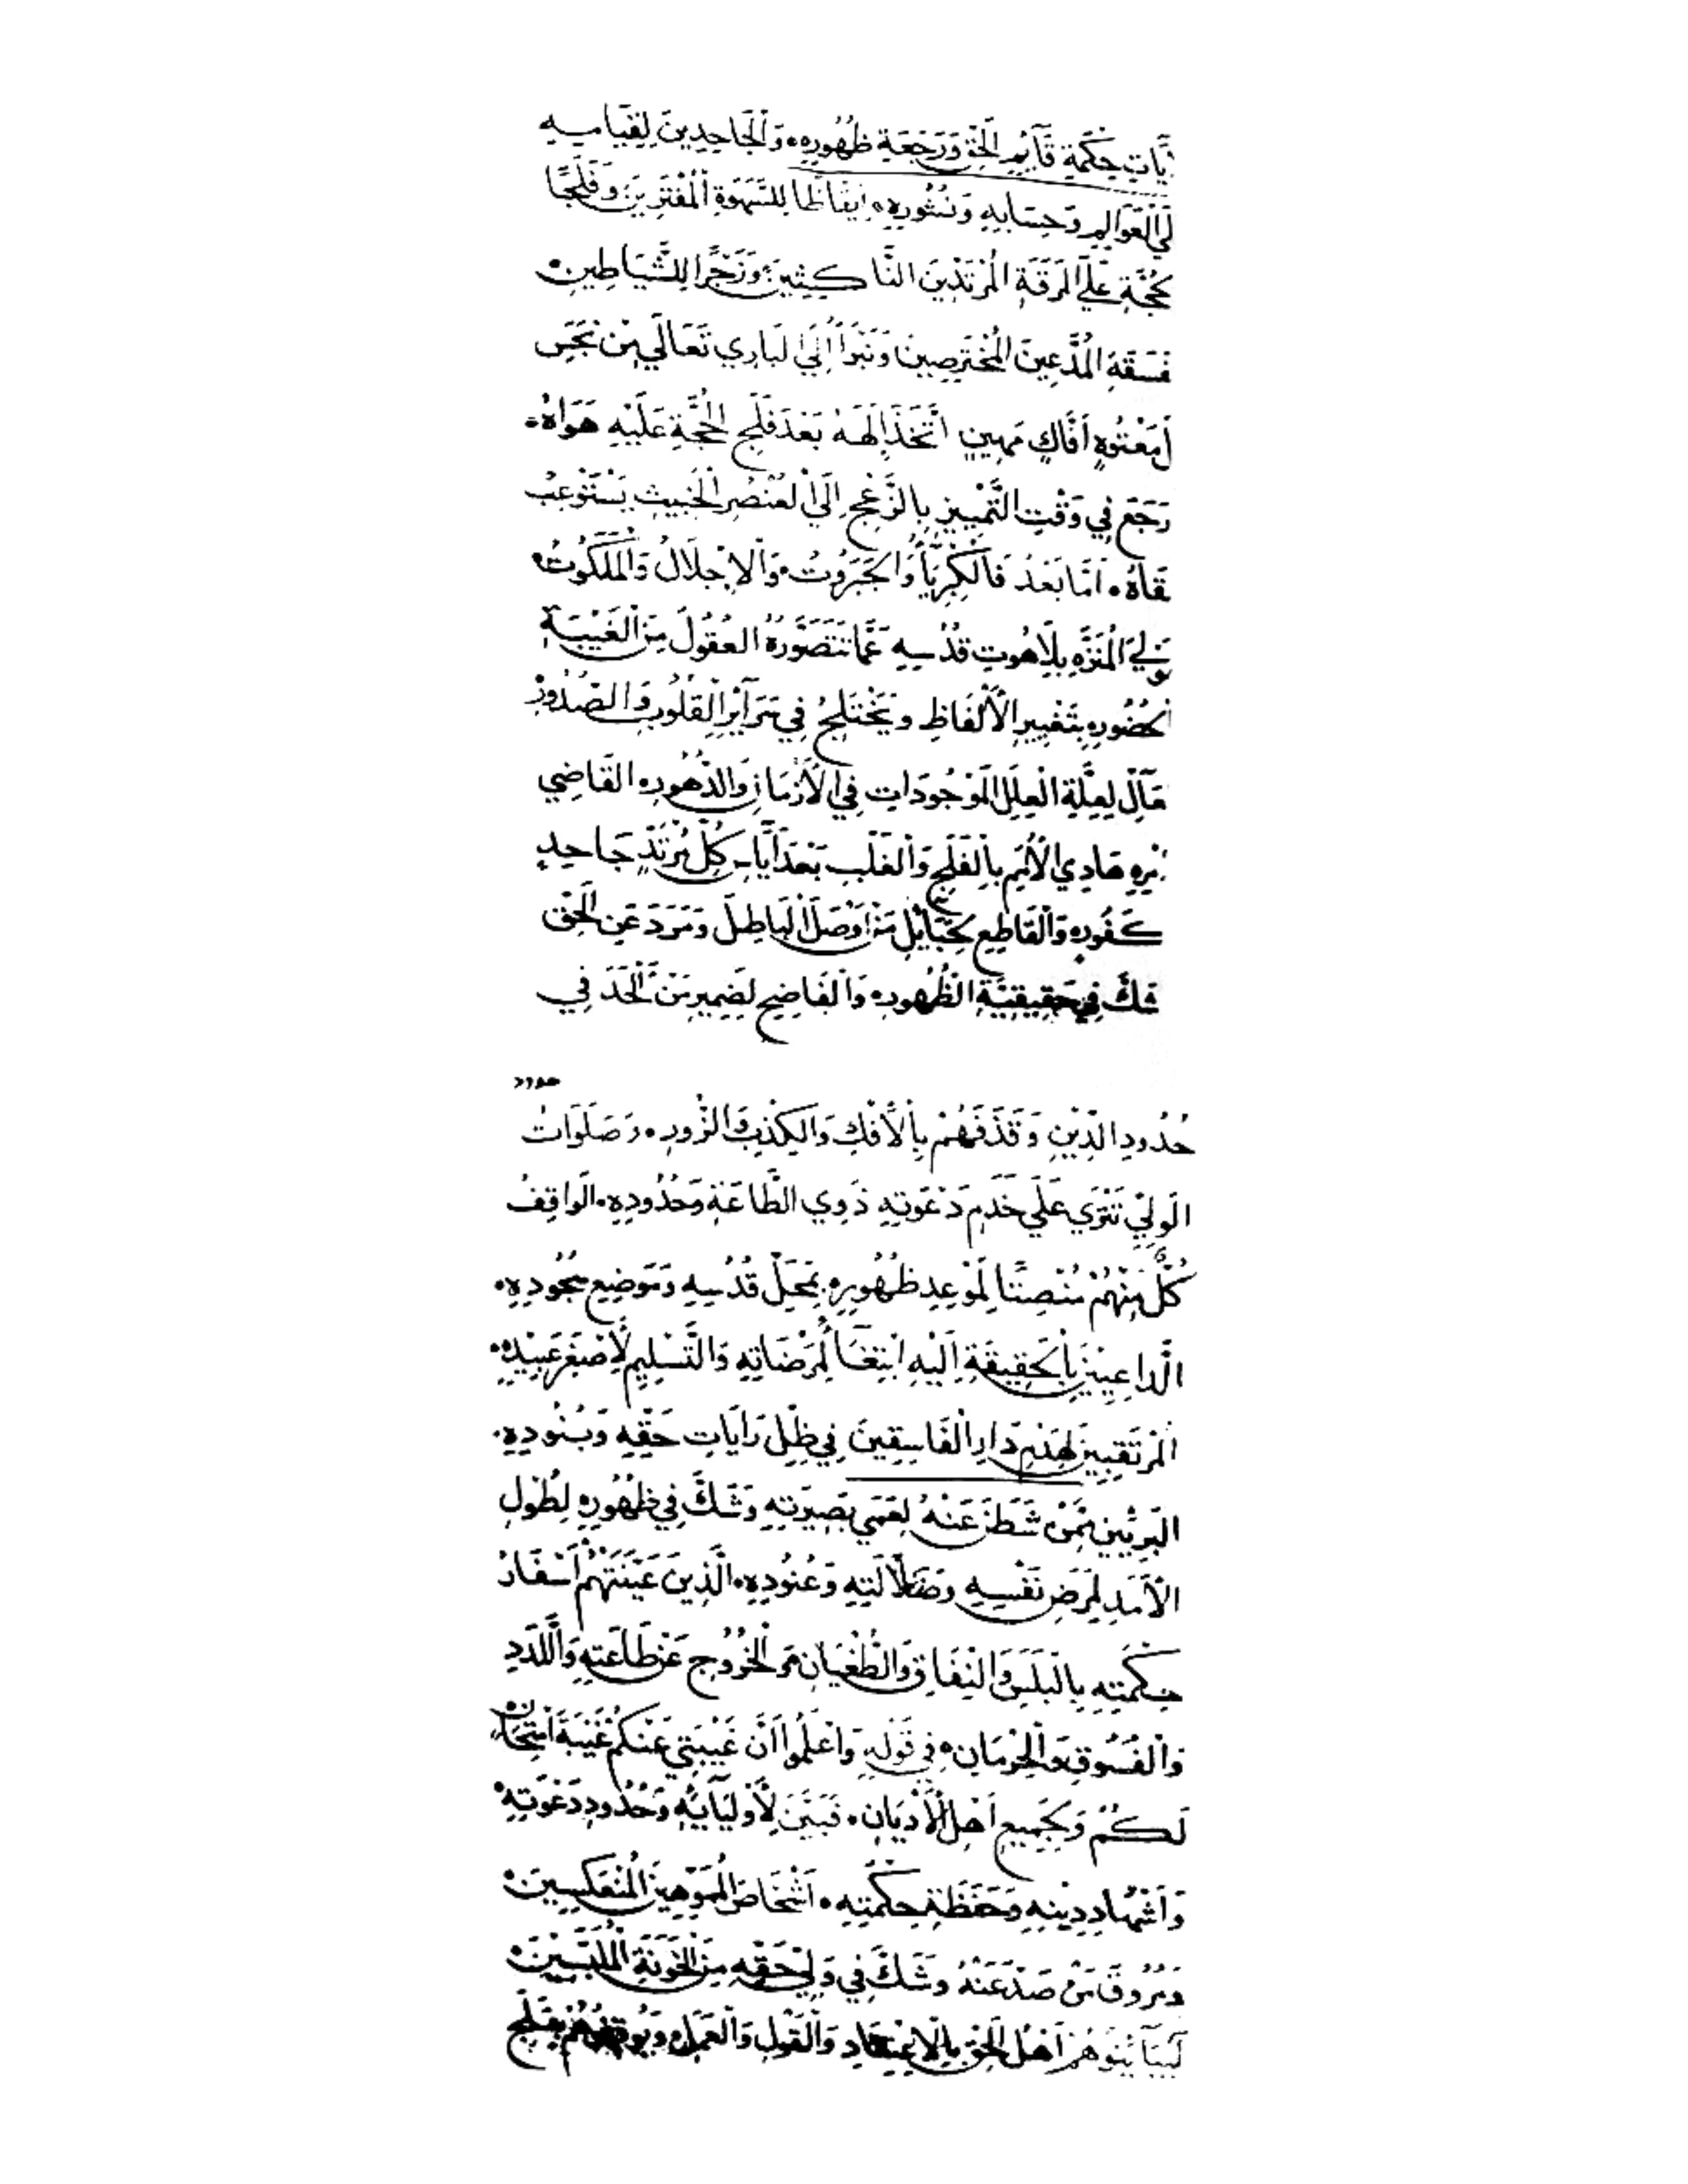 يَاتِ حِكْمَةِ قَآئِمِ الْحَقِّ وَرَجْعَةِ ظُهُورِهِ، وَالْجَاحِدِينَ لِقِيَامِهِ
فِي الْعَوَالِمِ وَحِسَابِهِ وَنُشُورِهِ، إِيقَاظًا لِلسَّهْوَةِ الْمُفْتَرِينَ وَفَلْجًا
بِحُجَّةٍ عَلَى الْمَرَقَةِ الْمُرْتَدِّينَ النَّاكِثِينَ، وَزَجْرًا لِلشَّيَاطِينِ
فَسَقَةِ الْمُدَّعِينَ الْمُخْتَرِصِينَ وَنَبْرَأُ إِلَى الْبَارِي تَعَالَى مِنْ نَجَسِ
مَعْتُوهٍ أَفَّاكٍ مَهِينٍ اتَّخَذَ إِلَهَهُ بَعْدَ فَلْجِ الْحُجَّةِ عَلَيْهِ هَوَاهُ
رَجَعَ فِي وَقْتِ التَّمْيِيزِ بِالزَّعْجِ إِلَى الْعُنْصُرِ الْخَبِيثِ يَسْتَوْعِبُ
قَاهُ، أَمَّا بَعْدُ فَالْكِبْرِيَاءُ وَالْجَبَرُوتُ، وَالْإِجْلَالُ وَالْمَلَكُوتُ،
لِمَوْلَى الْمُنَزَّهِ بِلَاهُوتِ قُدْسِهِ عَمَّا تَتَصَوَّرُهُ الْعُقُولُ مِنَ الْغَيْبَةِ
الْحُضُورِ بِتَغْيِيرِ الْأَلْفَاظِ وَيَخْتَلِجُ فِي سَرَآئِرِ الْقُلُوبِ وَالصُّدُورْ
عَآلِّ لِعِلَّةِ الْعِلَلِ الْمَوْجُودَاتِ فِي الْأَزْمَانِ وَالدُّهُورِ، الْقَاضِي
هَادِي الْأُمَمِ بِالْفَلْجِ وَالْغَلْبِ بَعْدَ كُلِّ مُرْتَدٍّ جَاحِدٍ
كَفُورٍ، وَالْقَاطِعِ لِحَبَائِلِ مَنْ أَوْصَلَ الْبَاطِلَ وَمَرَدَ عَنِ الْحَقِّ
شَكَّ فِي حَقِيقِيَّةِ الظُّهُورِ، وَالْفَاضِحِ لِضَمِيرِ مَنْ أَلْحَدَ فِي
حدود
حُدُودِ الدِّيْنِ وَقَذَفَهُمْ بِالْأَفْكِ وَالْكِذْبِ وَالزُّورِ، وَصَلَوَاتُ
الْوَلِيِّ تَتْرَى عَلَى خَدَمِ دَعْوَتِهِ ذَوِي الطَّاعَةِ وَحُدُودِهِ، الْوَاقِفُ
كُلٌّ مِنْهُمْ مُنْصِتًا لِمَوْعِدِ ظُهُورِهِ، بِمَحَلِّ قُدْسِهِ وَمَوْضِعِ سُجُودِهِ،
الدَّاعِيِينَ بِالْحَقِيقَةِ إِلَيْهِ ابْتِغَآءً لِمَرْضَاتِهِ وَالتَّسْلِيمِ لِأَصْغَرِ عَبِيدِهِ،
الْمُرْتَقِبِينَ لِهَدْمِ دَارِ الْفَاسِقِينَ فِي ظِلِّ رَايَاتِ حَقِّهِ وَبُنُودِهِ،
الْبَرِيِّينَ مِمَّنْ شَطَنَ عَنْهُ لِعَمَى بَصِيرَتِهِ وَشَكَّ فِي ظُهُورِهِ لِطُولِ
الْأَمَدِ لِمَرَضِ نَفْسِهِ وَضَلَالَتِهِ وَعُنُودِهِ، الَّذِينَ عَيَّنَتْهُمْ أَسْفَارُ
حِكْمَتِهِ بِالْبَلَسِ وَالنِّفَاقِ وَالطُّغْيَانِ، وَالْخُرُوجِ عَنْ طَاعَتِهِ وَاللَّدَدِ
وَالْفُسُوقِ وَالْحِرْمَانِ، فِي قَوْلِهِ وَاعْلَمُوا أَنَّ غَيْبَتِي عَنْكُمْ غَيْبَةَ امْتِحَانٍ
لَكُمْ وَلِجَمِيعِ أَهْلِ الْأَدْيَانِ، فَبَيَّنَ لِأَوْلِيَآئِهِ وَحُدُودِ دَعْوَتِهِ،
وَأَشْهَادِ دِيْنِهِ وَحَفَظَةِ حِكْمَتِهِ، أَشْخَاصَ الْمُمَوِّهِينَ الْمُنْعَكِسِينَ،
وَمُرُوقَ مَنْ صَدَّ عَنْهُ وَشَكَّ فِي وَلِيِّ حَقِّهِ مِنَ الْخَوَنَةِ الْمُلَبِّسِينَ،
أَهْلُ الْحَقِّ بِالْاِعْتِقَادِ وَالْقَوْلِ وَالْعَمَلِ، بِفَلْجِ